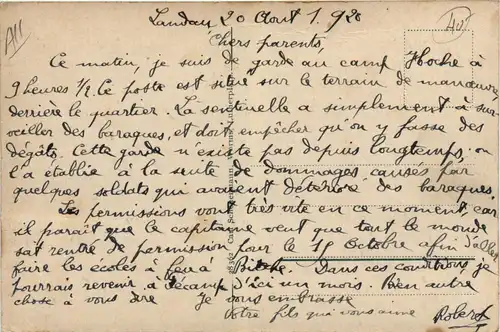 Landau 20 Aout 1.920
Chers parents,
Ce matin, je suis de garde au camp Hoche à
9 heures 1/2. Ce poste est situé sur le terrain de manœuvre
derrière le quartier. La sentinelle a simplement à sur-
veiller des baraques, et doit empêcher qu'on y fasse des
dégâts. Cette garde n'existe pas depuis longtemps. on
l'a établie à la suite de dommages causés par
quelques soldats qui avaient détérioré des baraques.
Les permissions vont très vite en ce moment, car
il paraît que le capitaine veut que tout le monde
soit rentré de permission pour le 15 Octobre afin d'aller
faire les écoles à feu à Bitche. Dans ces conditions, je
pourrais revenir à Fécamp d'ici un mois. Rien autre
chose à vous dire Je vous embrasse
Votre fils qui vous aime Robert